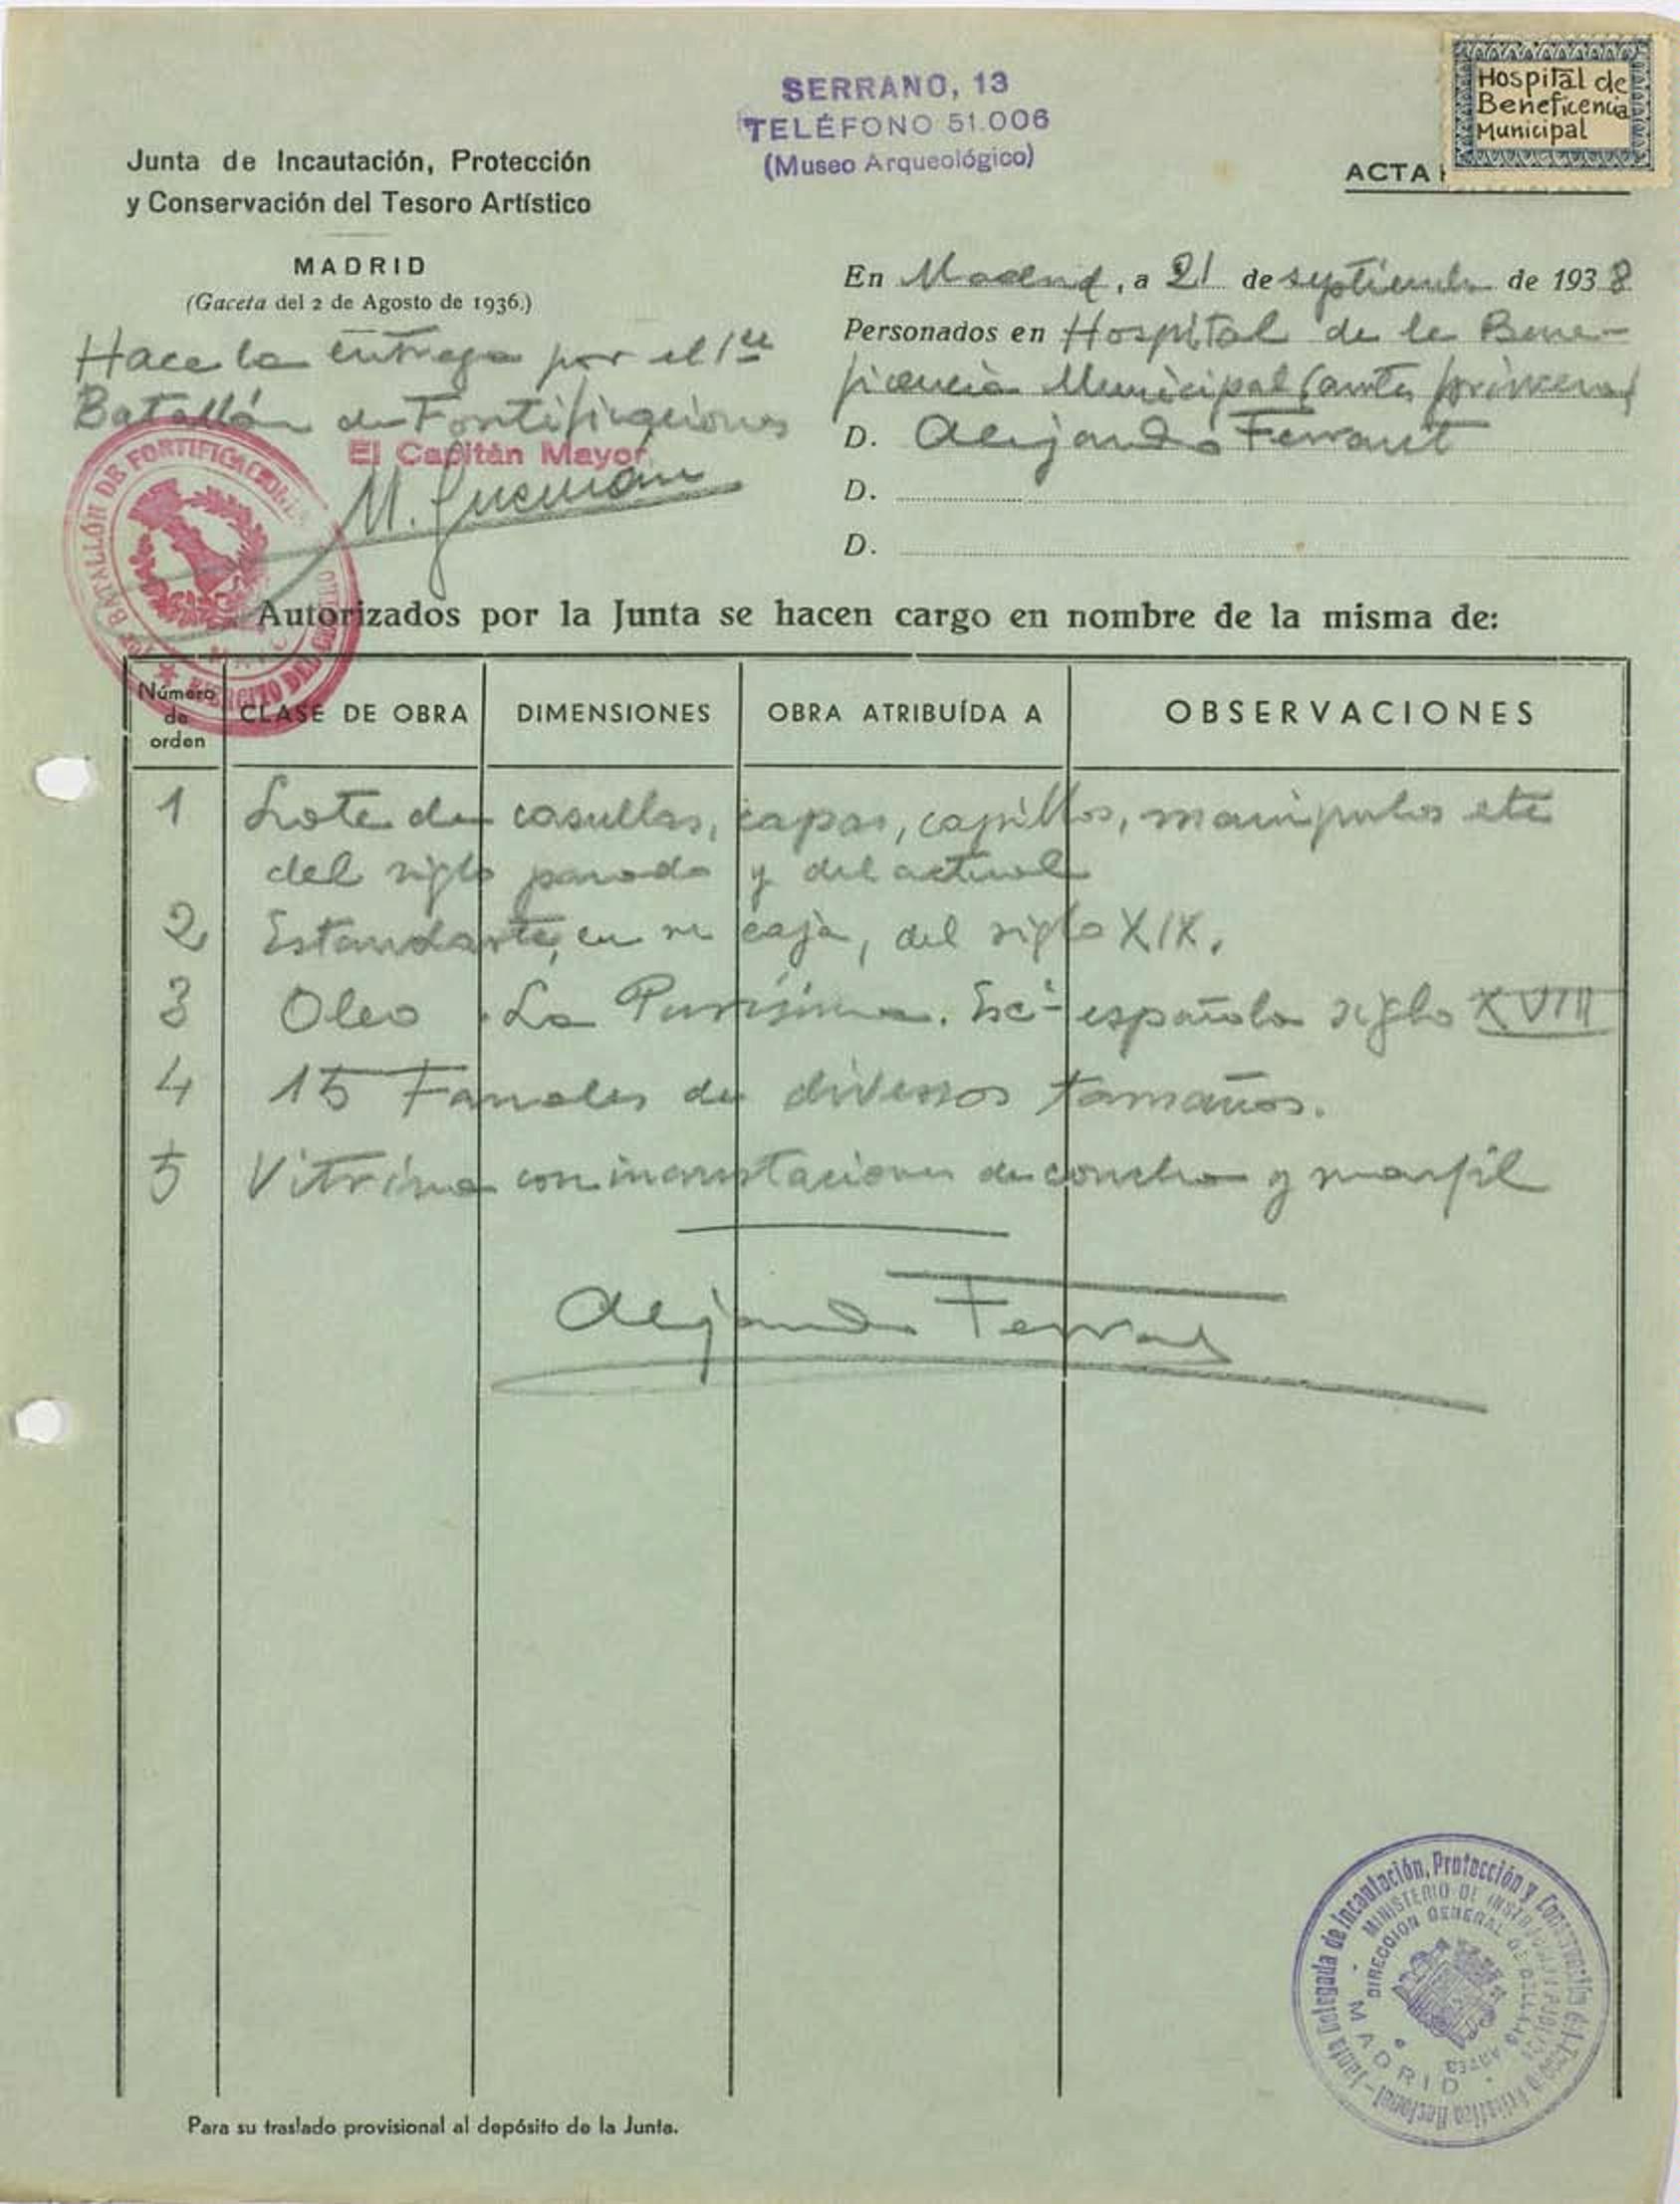 SERRANO, 13
TELÉFONO 51.006
(Museo Arqueológico)
Hospital de
Beneficencia
Municipal
ACTA
Junta de Incautación, Protección
y Conservación del Tesoro Artístico
MADRID
(Gaceta del 2 de Agosto de 1936.)
Hace la entrega por el 1er
Batallón de Fortificaciones
El Capitán Mayor
M. Guzman
BATALLÓN DE FORTIFICACIONES
EJERCITO DEL CENTRO
En Madrid, a 21 de septiembre de 1938
Personados en Hospital de la Bene-
ficencia Municipal (antes
D. Alejandro Ferrant
D.
D.
Autorizados por la Junta se hacen cargo en nombre de la misma de:
Número de orden CLASE DE OBRA DIMENSIONES OBRA ATRIBUÍDA A OBSERVACIONES
1 Lote de casullas, capas, capillos, manipulos etc
del siglo pasado y del actual
2 Estandarte, en su caja, del siglo XIX.
3 Oleo . La Purísima. Esca española siglo XVIII
4 15 Fanales de diversos tamaños.
5 Vitrina con incrustaciones de concha y marfil
Alejandro Ferrant
Junta Delegada de Incautación, Protección y Conservación del Tesoro Artístico Nacional
MINISTERIO DE INSTRUCCION PUBLICA
DIRECCION GENERAL DE BELLAS ARTES
MADRID
Para su traslado provisional al depósito de la Junta.